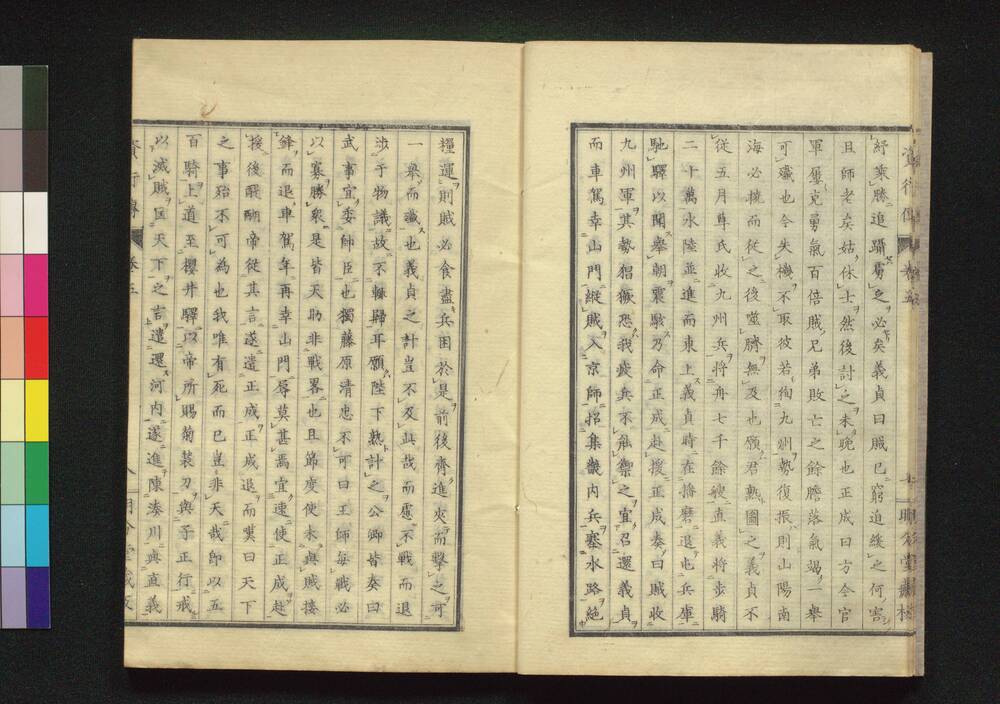 紓乘勝追躡勇之必矣義貞曰賊已窮迫緩之何害
且師老矣姑休士然後討之未晩也正成曰方今官
軍屢克勇氣百倍賊兄弟敗亡之餘膽落氣竭一舉
可殲也今失機不取彼若徇九州勢復振則山陽南
海必擁而従之後噬臍無及也願君熟圖之義貞不
従五月尊氏收九州兵將舟七千餘艘直義將歩騎
二十萬水陸並進而東上義貞時在播磨退屯兵庫
馳驛以聞舉朝震駭乃命正成赴援正成奏曰賊收
九州軍其勢猖獗恐我疲兵不能禦之宜召還義貞
而車駕幸山門縱賊入京師招集畿内兵塞水路絶
糧運則賊必食盡兵困於是前後齊進夾而擊之可
一舉而殲也義貞之計豈不及此哉而慮不戰而退
涉于物議故不輙歸耳願陛下熟計之公卿皆奏曰
武事宜委師臣也獨藤原清忠不可曰王師毎戰必
以寡勝衆是皆天助非戰畧也且節度使未與賊接
鋒而退車駕年再幸山門辱莫甚焉宜速使正成赴
援後醍醐帝従其言遂遣正成正成退而嘆曰天下
之事殆不可為也我唯有死而已豈非天哉即以五
百騎上道至櫻井驛以帝所賜菊装刀與子正行戒
以滅賊匡天下之言遣還河内遂進陳湊川與直義